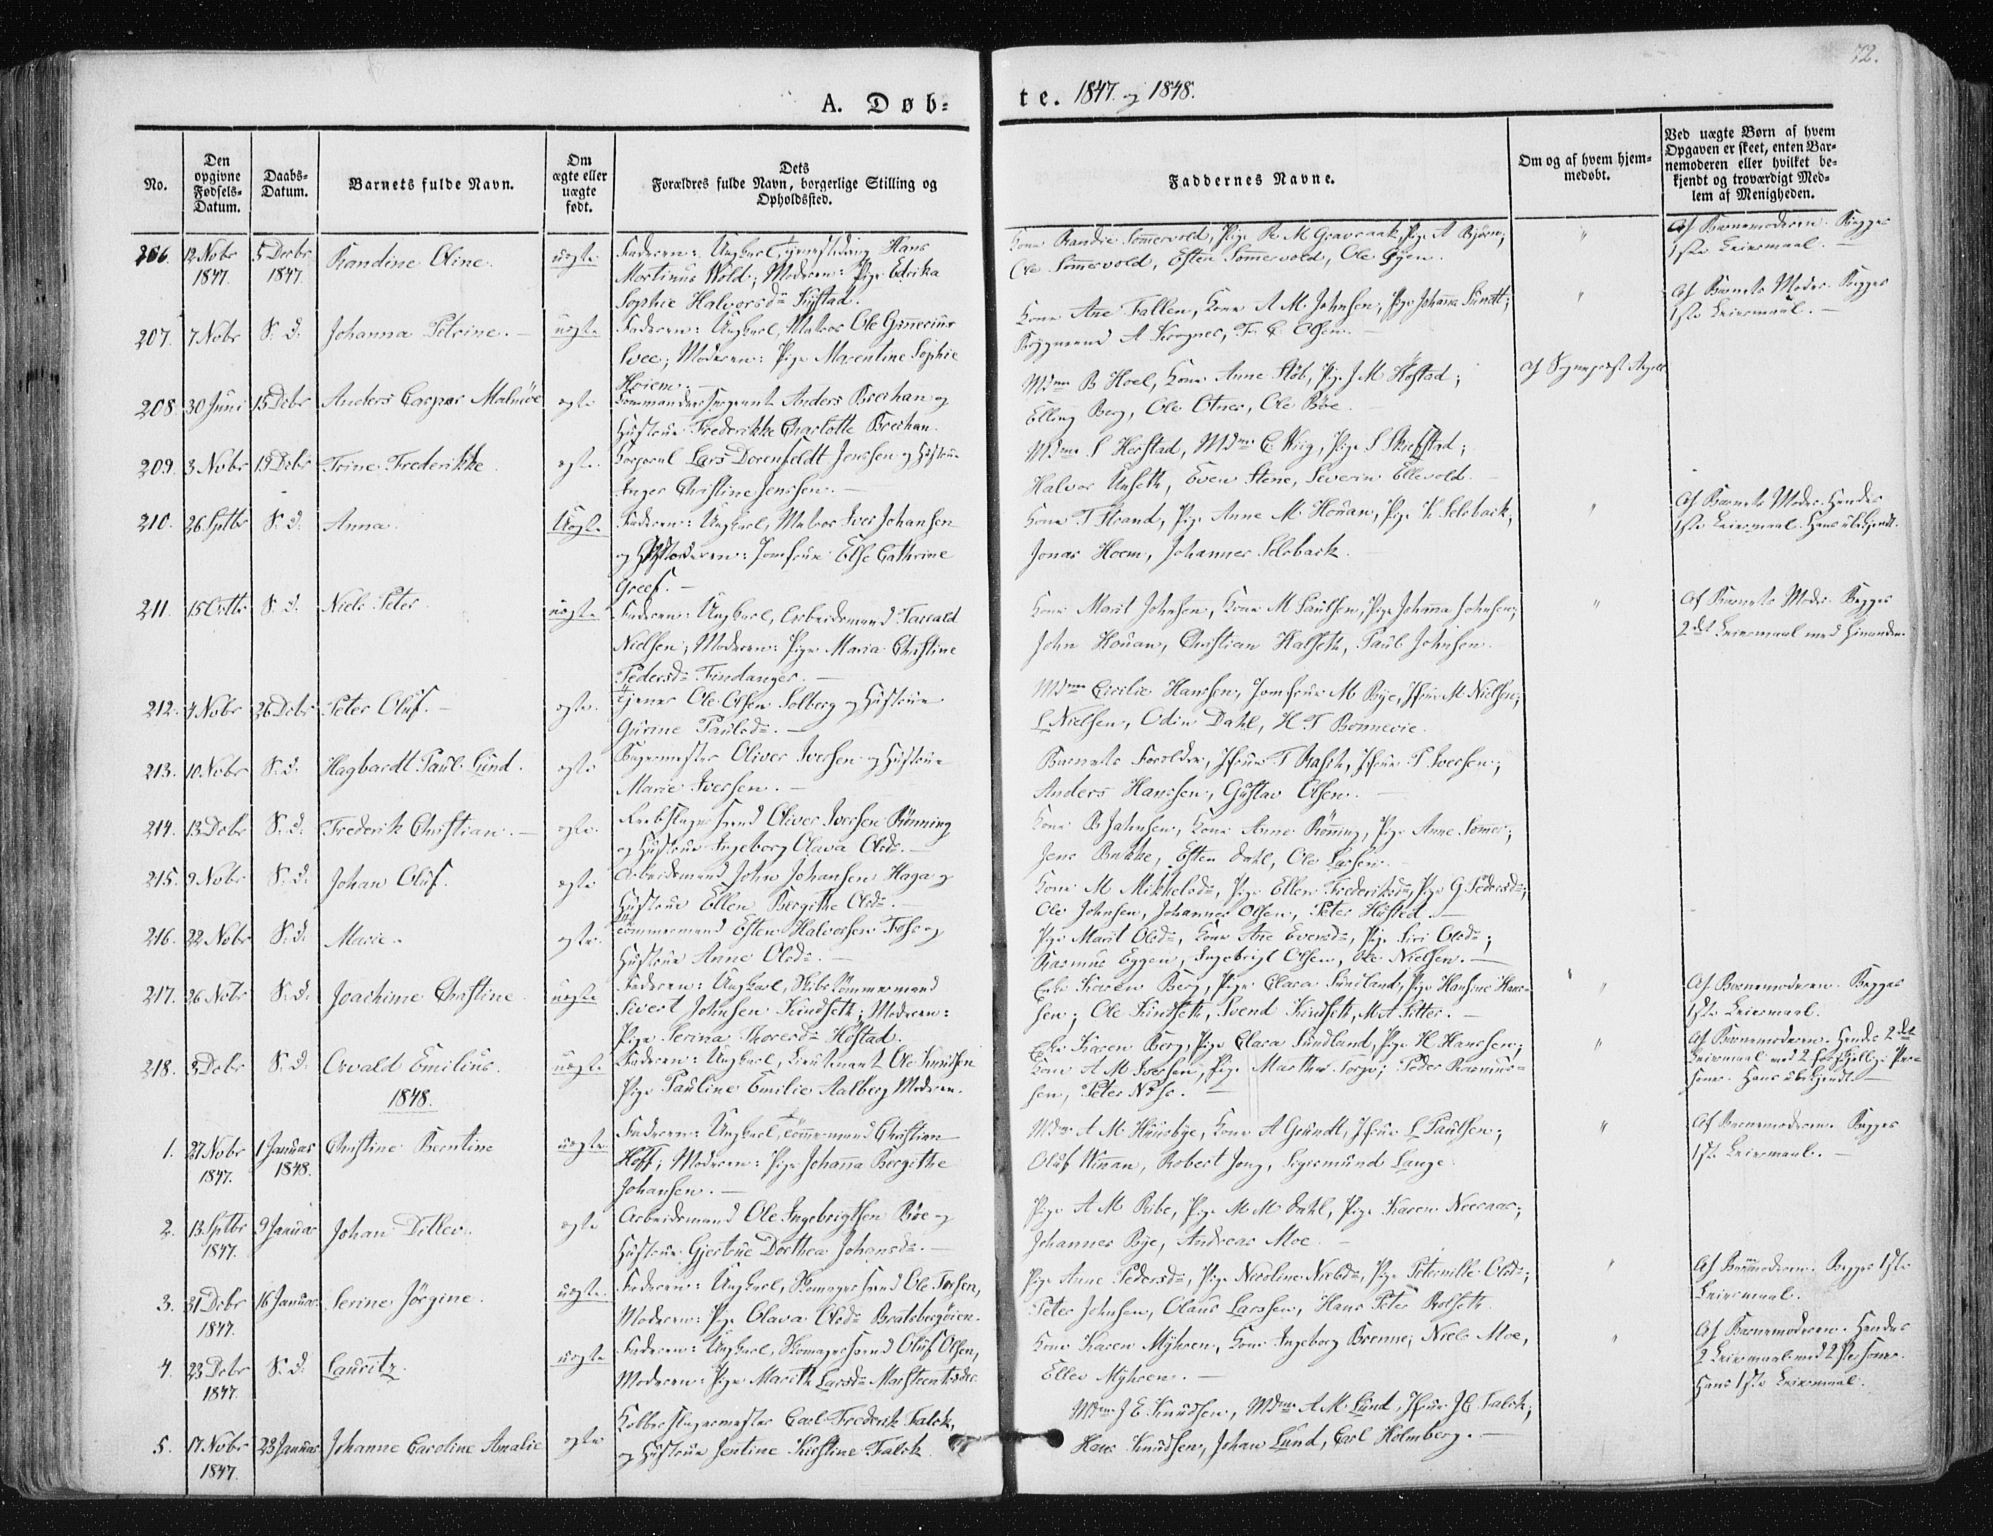 72.
A. Døb-
te. 1847. og 1848.
No.
Den opgivne Fødsels-Datum.
Daabs-Datum.
Barnets fulde Navn.
Om ægte eller uægte født.
Dets Forældres fulde Navn, borgerlige Stilling og Opholdssted.
Faddernes Navne.
Om og af hvem hjem-medøbt.
Ved uægte Børn af hvem
Opgaven er skeet, enten Bar-
nemoderen eller hvilket be-
kjendt og troværdigt Med-
lem af Menigheden.
206. 12 Nobr 5 Decbr Randine Oline. uægte Faderen: Ungkarl, Hans
1847. 1847.
Mortinus Wold; Moderen: Pige Edrika
Sophie Halvorsd. Kystad.
Kone Randie Sommervold, Pige A Bjørn;
Ole Sommervold, Esten Sommervold, Ole Øyen.
Af Barnemoderen. Begges
1ste Leiermaal.
207. 7 Nobr S. d. Johanna Petrine. uægte Faderen: Ungkarl, Matros Ole
Svee; Moderen: Pige Marentine Sophie
Hoiem.
Kone Ane Fallen, Kone A M Johnsen, Pige Johanna
A Krognes, E Olsen.
Af Barnets Moder. Begges
1ste Leiermaal.
208. 30 Juni 15 Debr Anders Caspar ægte Anders Breihan og
Hustrue Frederikke Charlotte Breihan.
Mdme B Hoel, Kone Anne Støb, Pige J M Høstad;
Elling Berg, Ole Otnes, Ole Bøe.
Af Sognepræst
209. 3 Nobr 19 Debr Trine Frederikke ægte. Korporal Lars Dorenfeldt Jenssen og Hustrue
Inger Christine Jenssen.
Mdme S Herstad, Mdme C Wiig, Pige S
Halvor Unseth, Even Stene, Severin Ellevold.
210. 26 Septbr S. d. Anna. Uægte Faderen: Ungkarl, Matros Iver Johansen
og Moderen: Jomfrue Else Cathrine
Greef.
Kone T Strand, Pige Anne M Houan, Pige K Selsback,
Jonas Hoem, Johannes Selsback.
Af Barnets Moder. Hendes
1ste Leiermaal. Hans ubekjendt.
211. 15 Octbr S. d. Niels Peter. uægte Faderen: Ungkarl, Arbeidsmand
Nielsen; Moderen: Pige Maria Christine
Pedersd.
Kone Marit Johnsen, Kone M Paulsen, Pige Johanna Johnsen;
John Houan, Christian Halseth, Paul Johnsen.
Af Barnets Moder. Begges
2det Leiermaal med hinanden.
212. 4 Nobr 26 Debr Peter Oluf. ægte. Tjener Ole Olsen Solberg og Hustrue
Gurine Paulsd.
Mdme Cecilie Hanssen, Jomfrue M Bye, Jfrue M Nielsen;
L Nielsen, Odin Dahl, H T Bonnevie.
213. 10 Nobr S. d. Hagbardt Paul Lund. ægte Bagermester Oliver Iversen og Hustrue
Marie Iversen.
Barnets Forældre, Jfrue T Rasch, Jfrue P Iversen;
Anders Hanssen, Gustav Olsen.
214. 13 Debr S. d. Frederik Christian. ægte. Rebslagersvend Oliver Iversen Rønning
og Hustrue Ingeborg Olava Olsd.
Kone B Jahnsen, Kone Anne Rønning, Pige Anne Somer;
Jens Bakke, Esten Dahl, Ole Larsen.
215. 9 Nobr S. d. Johan Oluf. ægte Arbeidsmand John Johansen Haga og
Hustrue Ellen Bergithe Olsd.
Kone M Mikkelsd., Pige Ellen Frederiksd., Pige G Pedersd.;
Ole Johnsen, Johannes Olsen, Peter Høsted.
216. 22 Nobr S. d. Marie. ægte. Tømmermand Esten Halvorsen Foss og
Hustrue Anne Olsd.
Pige Marit Olsd., Kone Ane Evensd., Pige Siri Olsd.;
Rasmus Eggen, Ingebrigt Olsen, Ole Nielsen.
217. 26 Nobr S. d. Joachime Christine uægte Faderen: Ungkarl, Skibstømmermand
Sivert Johnsen Kindseth; Moderen:
Pige Serina Thoresd. Hofstad.
Enke Karen Berg, Pige Clara Sundland, Pige Hansine Hans-
sen; Ole Kindseth, Svend Kindseth, M A Sitter.
Af Barnemoderen. Begges
1ste Leiermaal.
218. 3 Debr S. d. Osvald Emilius. uægte Faderen: Ungkarl, Lieutenant Ole Knudsen
Pige Pauline Emilie Aalberg Moderen.
Enke Karen Berg, Pige Clara Sundland, Pige H. Hanssen;
Kone A M Iversen, Pige Marthe Torp; Peder Rasmus-
sen, Peter Næss.
Af Barnemoderen. Hendes 2det
Leiermaal med 2 forskjellige Per-
soner. Hans ubekjendt.
1848.
1. 27 Nobr 1 Januar Christine Berntine uægte. Faderen: Ungkarl, Tømmermand Christian
1847. 1848.
Hoff; Moderen: Pige Johanna Bergithe
Johansen.
Mdme A M Huusbye, Kone A Grundt, Jfrue L Paulsen;
Oluf Winan, Robert Jong, Sigismund Lange
Af Barnemoderen. Begges
1ste Leiermaal.
2. 13 Septbr 9 Januar Johan Ditlev. ægte Arbeidsmand Ole Ingebrigtsen Bøe og
1847.
Hustrue Gjertrue Dorthea Johansd.
Pige A M Ribe, Pige M M Dahl, Pige Karen Neeraas;
Johannes Bye, Andreas Moe.
3. 31 Debr 16 Januar Serine Jørgine. uægte. Faderen: Ungkarl, Skomagersvend Ole Torsen,
1847.
Moderen: Pige Olava Olsd. Bratsbergøien.
Pige Anne Pedersd., Pige Nicoline Nielsd., Pige Peternille Olsd.;
Peter Johnsen, Olaus Larssen, Hans Peter Rolseth.
Af Barnemoderen. Begges 1ste
Leiermaal.
4. 23 Debr S. d. Lauritz. uægte Faderen: Ungkarl, Skomagersvend Oluf Olsen,
1847.
Moderen: Pige Marith Larsd.
Kone Karen Myhren, Kone Ingeborg Brenne; Niels Moe,
Ellev Myhren.
Af Barnemoderen. Hendes
2 Leiermaal med 2 Personer.
Hans 1ste Leiermaal.
5. 17 Nobr 23 Januar Johanne Caroline Amalie ægte Kobberslagermester Carl Frederik Falck,
1847.
og Hustrue Jentine Kirstine Falck
Mdme J E Knudsen, Mdme A M Lund, Jfrue J C Falck;
Hans Knudsen, Johan Lund, Carl Holmberg.